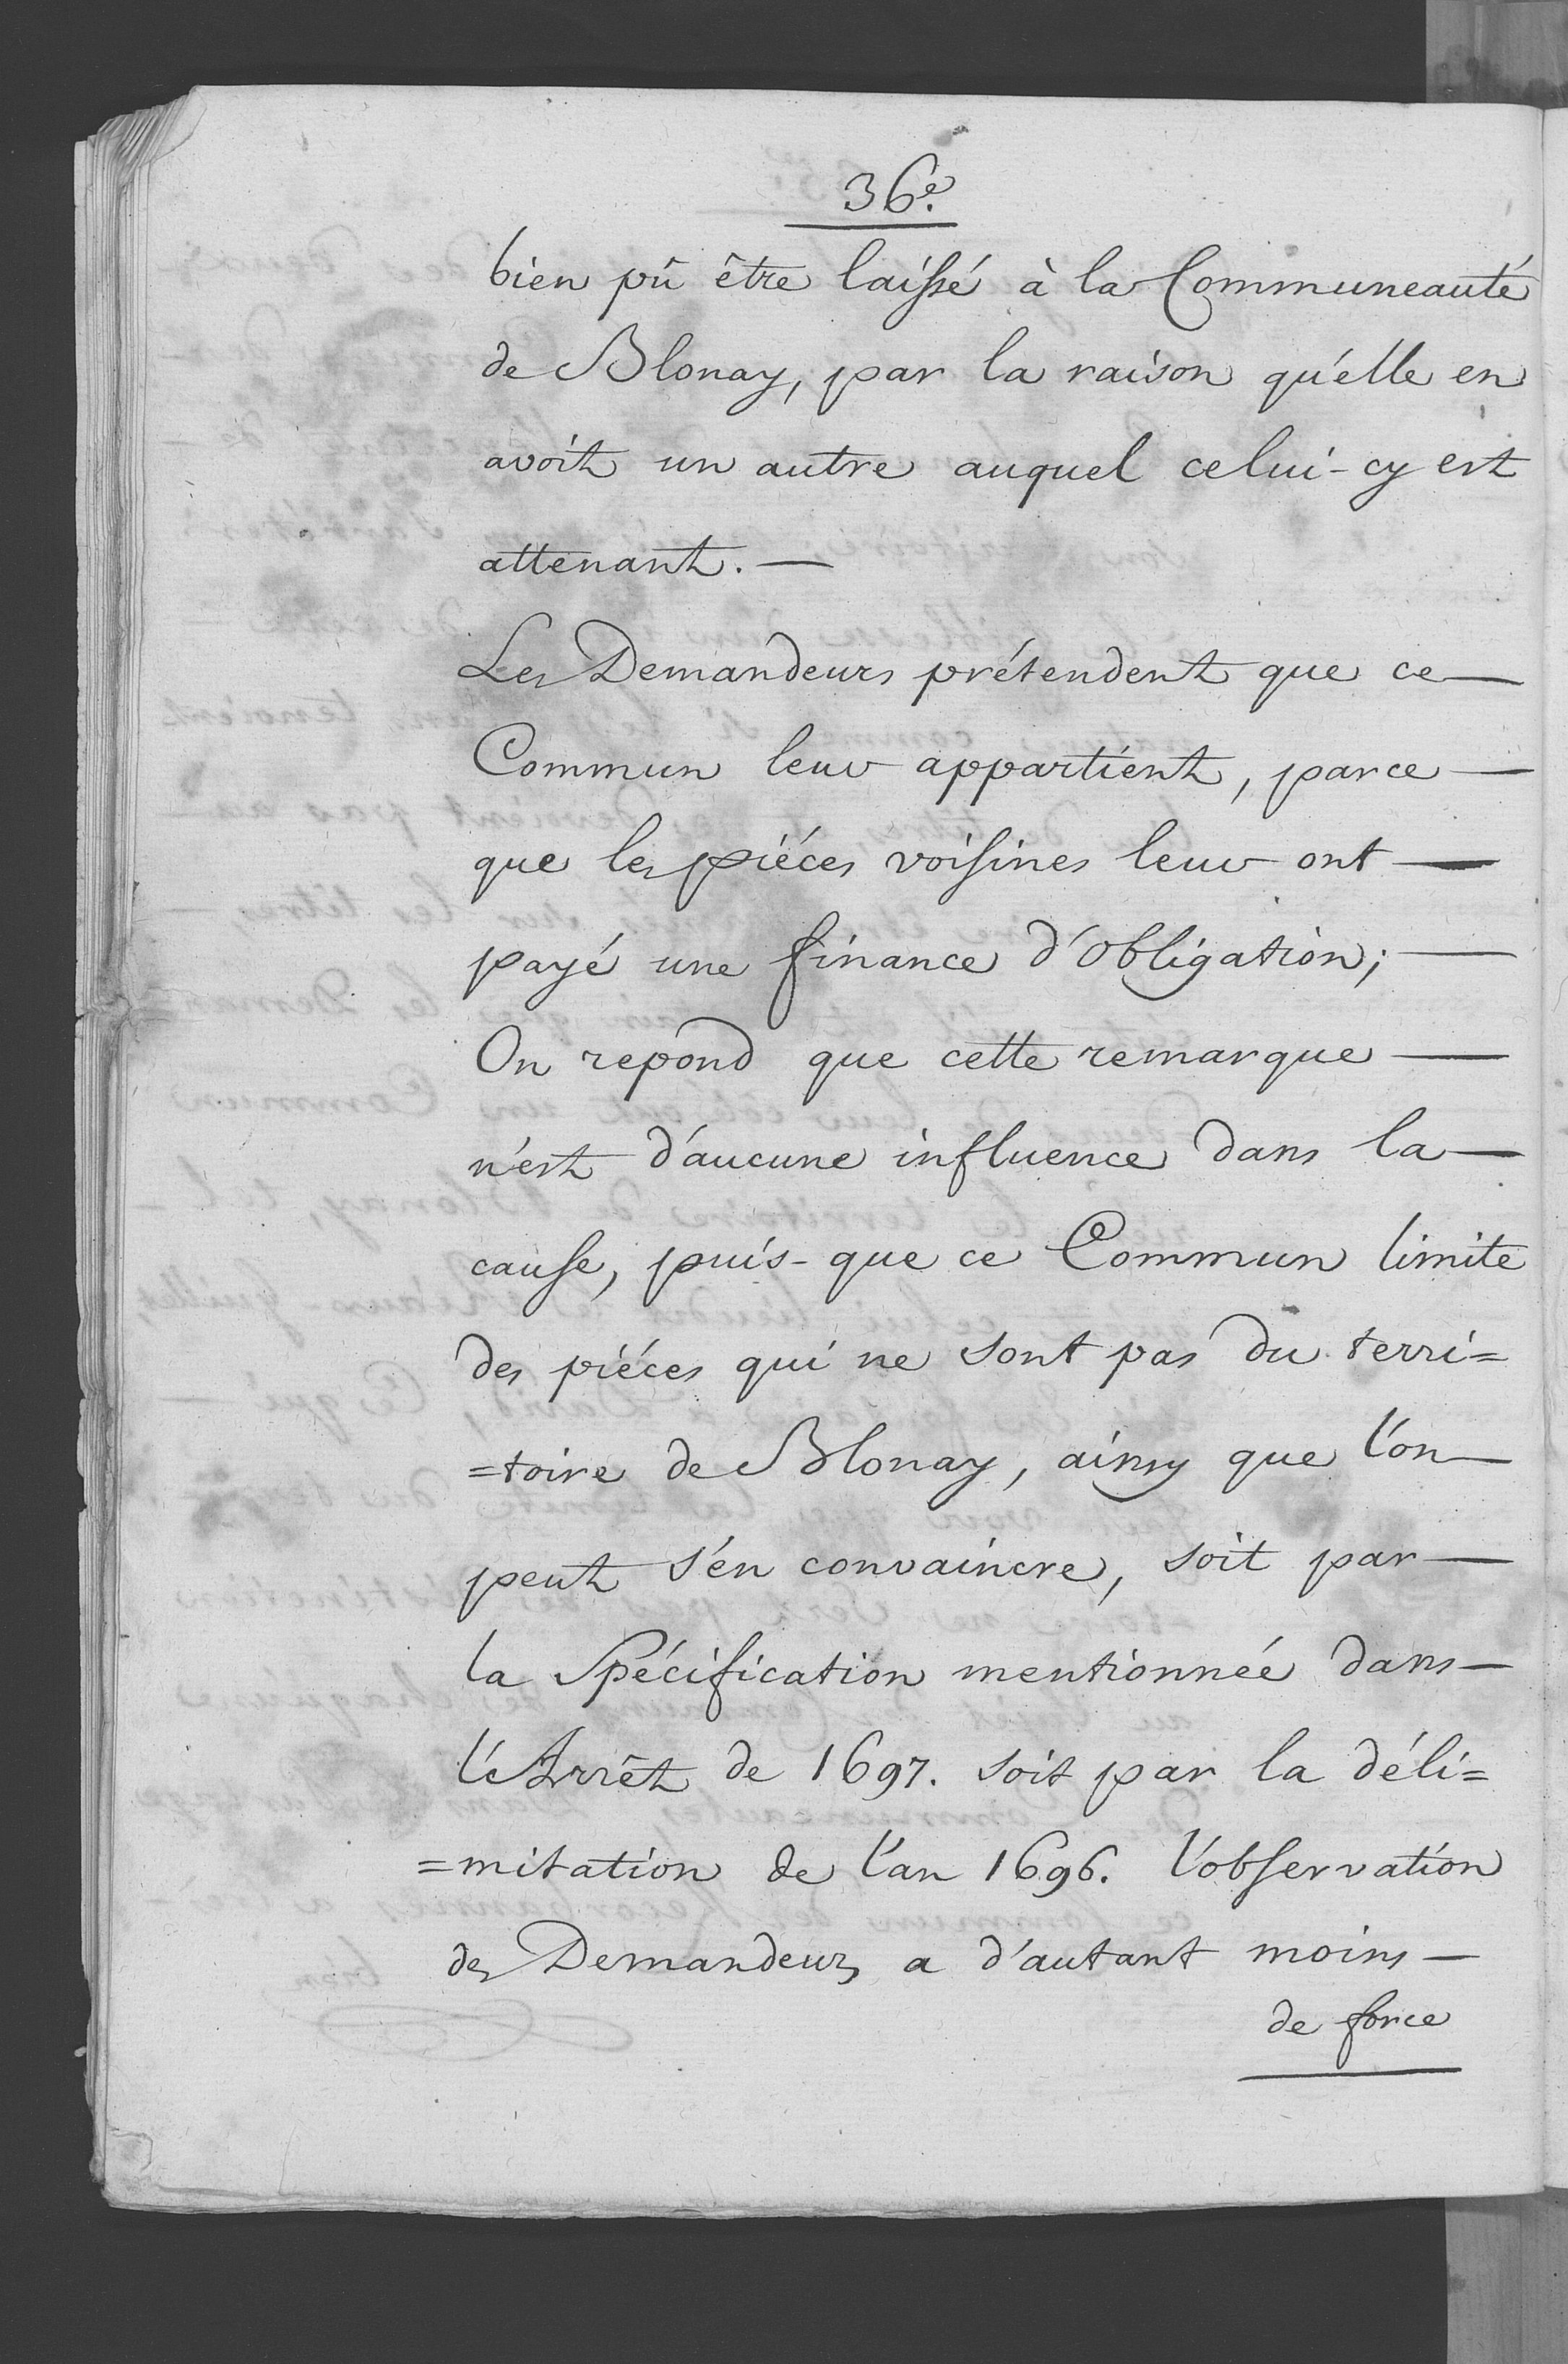 36.e
bien pû être laissé à la Communeauté
de Blonay, par la raison qu'elle en
avoit un autre auquel celui-cy est
attenant. —
Les Demandeurs prétendent que ce —
Commun leur appartient, parce —
que les piéces voisines leur ont —
payé une finance d'obligation; —
On repond que cette remarque —
n'est d'aucune influence dans la —
cause, puis-que ce Commun limite
des piéces qui ne sont pas du terri=
=toire de Blonay, ainsy que l'on —
peut s'en convaincre, soit par —
la Spécification mentionnée dans —
l'Arrêt de 1697. soit par la déli=
=mitation de l'an 1696. l'observation
des Demandeurs a d'autant moins —
de force